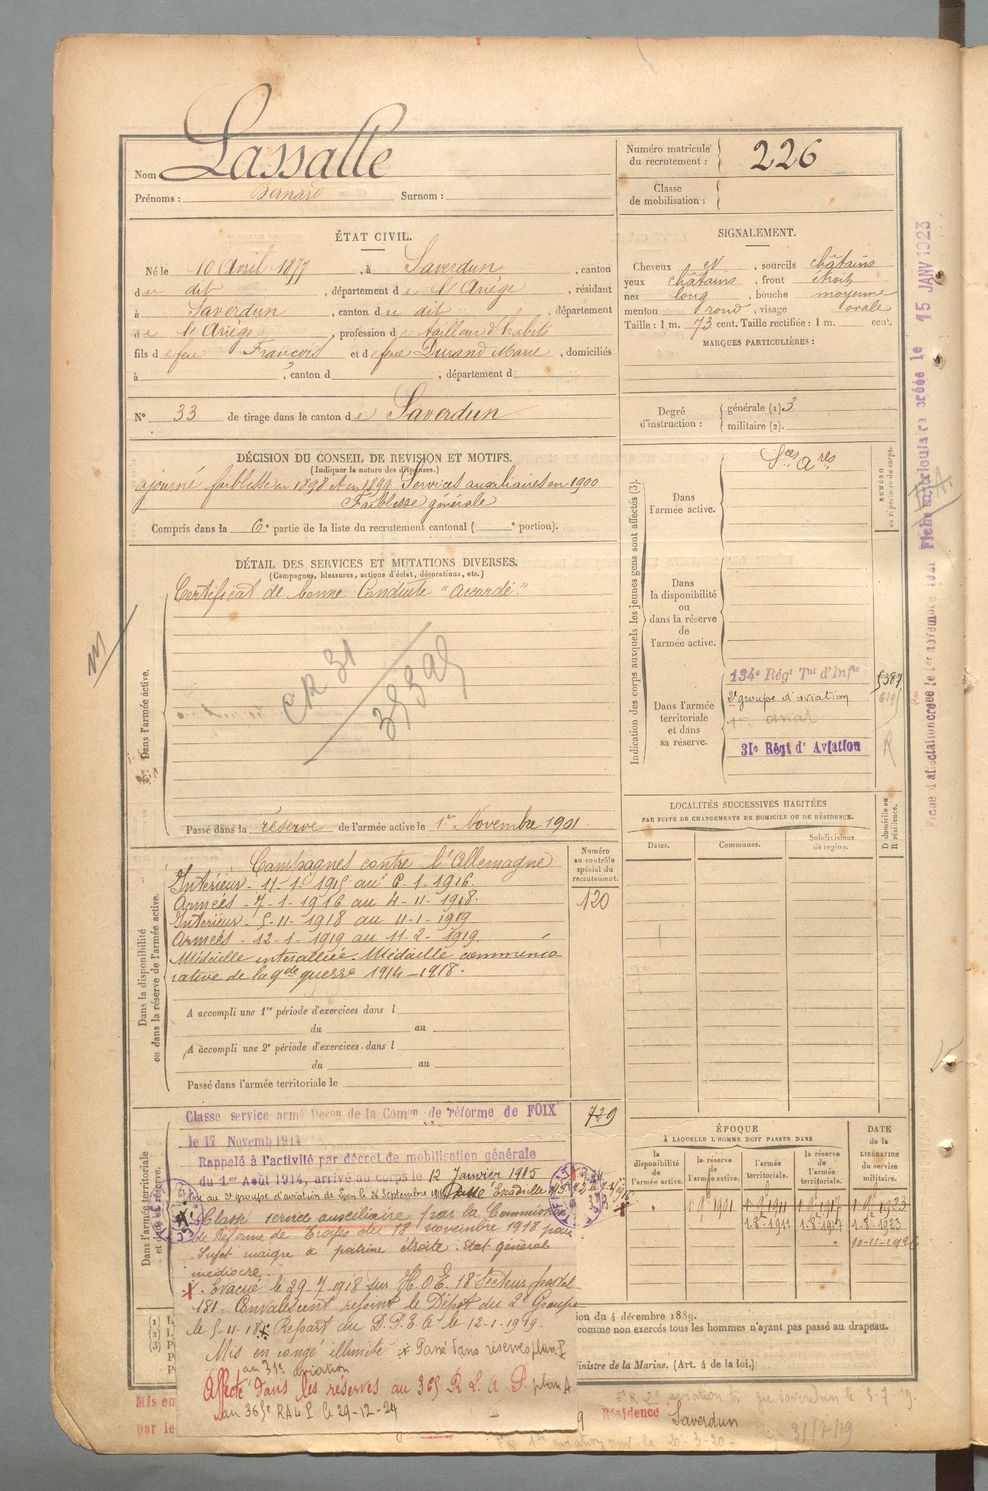 Nom Lassalle
Prénoms : Bernard Surnom :
Numéro matricule du recrutement : 226
Classe de mobilisation :
ÉTAT CIVIL.
Né le 10 Avril 1877, à Saverdun, canton
du dit, département de l'Ariège, résidant
à Saverdun, canton du dit, département
de l'Ariège, profession de tailleur d'habits
fils de feu François et de feue Durand Marie, domiciliés
à , canton d , département d
N° 33 de tirage dans le canton de Saverdun
SIGNALEMENT.
Cheveux et , sourcils châtains
yeux châtains , front étroit
nez long , bouche moyenne
menton rond , visage ovale
Taille : 1 m. 73 cent. Taille rectifiée : 1 m. cent.
MARQUES PARTICULIÈRES :
Degré d'instruction : générale (1) 3
militaire (2).
DÉCISION DU CONSEIL DE REVISION ET MOTIFS.
(Indiquer la nature des dispenses.)
ajourné faiblesse en 1898 et en 1899 Services auxiliaires en 1900
Faiblesse générale
Compris dans la 6e partie de la liste du recrutement cantonal ( e portion).
DÉTAIL DES SERVICES ET MUTATIONS DIVERSES.
(Campagnes, blessures, actions d'éclat, décorations, etc.)
Certificat de bonne Conduite "Accordé"
Dans l'armée active.
Passé dans la réserve de l'armée active le 1er Novembre 1901
Indication des corps auxquels les jeunes gens sont affectés (3).
NUMÉRO au répertoire du corps.
Dans l'armée active.
Sces Ares
Dans la disponibilité ou dans la réserve de l'armée active.
Dans l'armée territoriale et dans sa réserve.
134e Régt Tal d'Infie
2e groupe d'aviation
31e Régt d' Aviation
LOCALITÉS SUCCESSIVES HABITÉES
PAR SUITE DE CHANGEMENTS DE DOMICILE OU DE RÉSIDENCE.
Dates. Communes. Subdivisions de région. D domicile ou R résidence.
Dans la disponibilité ou dans la réserve de l'armée active.
Numéro au contrôle spécial du recrutement.
120
Campagnes contre l'Allemagne
Intérieur - 11-1-1915 au 6-1-1916.
Armées - 7-1-1916 au 4-11-1918.
Intérieur - 5-11-1918 au 11-1-1919
Armées - 12-1-1919 au 11-2-1919.
Médaille interalliée. Médaille commémo
rative de la gde guerre 1914-1918.
A accompli une 1re période d'exercices dans l
du au
A accompli une 2e période d'exercices dans l
du au
Passé dans l'armée territoriale le
Dans l'armée territoriale et dans sa réserve.
729
Classe service armé Decon de la Comon de réforme de FOIX
le 17 Novemb 1914
Rappelé à l'activité par décret de mobilisation générale
du 1er Août 1914, arrivé au corps le 12 Janvier 1915
au 2e groupe d'aviation de Lyon le 26 septembre
Classé service auxiliaire par la Commission
de Réforme de Troyes du 18 novembre 1918 pour
Sujet maigre à poitrine étroite. Etat général
médiocre
Evacué le 29.7.1918 sur H.O.E. 18 Secteur postal
181 Convalescent rejoint le Dépôt du 2e Groupe
le 5-11-18. Repart au D.P.E.A le 12-1-1919.
Mis en congé illimité Passé dans réserves plan
au 31e aviation
Affecté dans les réserves au 365 R.L.A.P. plan A
au 365e RALP le 29-12-24
ÉPOQUE
À LAQUELLE L'HOMME DOIT PASSER DANS
la disponibilité de l'armée active. la réserve de l'armée active. l'armée territoriale. la réserve de l'armée territoriale.
DATE de la LIBÉRATION du service militaire.
1-9-1901 1-8-1911 1-8-1917 1-8-1923
ion du 4 décembre 1889.
comme non exercés tous les hommes n'ayant pas passé au drapeau.
inistre de la Marine. (Art. 4 de la loi.)
Mis en
par le
Résidence Saverdun
31/7/19
Fiche matriculaire créée le 15 JANV 1923